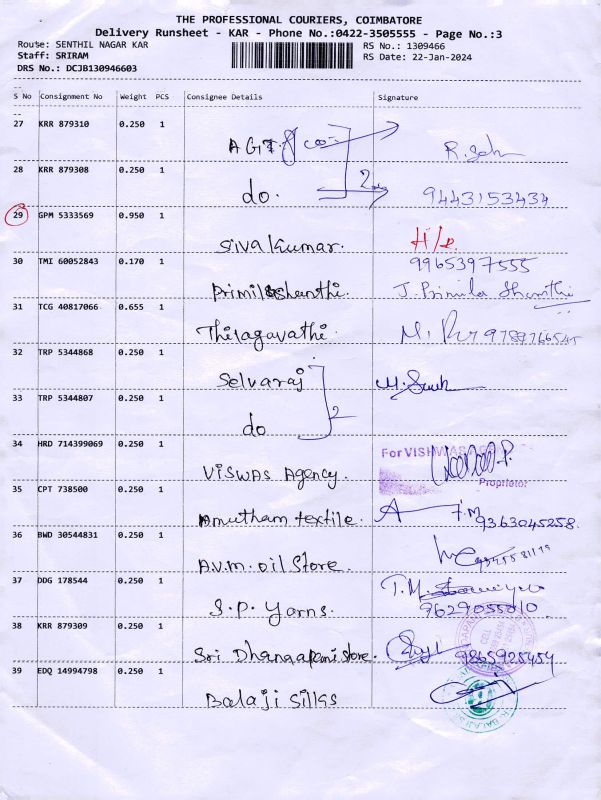 THE PROFESSIONAL COURIERS, COIMBATORE
Delivery Runsheet - KAR - Phone No.:0422-3505555 - Page No.:3
Route: SENTHIL NAGAR KAR
RS No.: 1309466
Staff: SRIRAM
RS Date: 22-Jan-2024
DRS No.: DCJB130946603
S No Consignment No Weight PCS Consignee Details Signature
27 KRR 879310 0.250 1
AGT
28 KRR 879308 0.250 1
do. 2
9443153434
29 GPM 5333569 0.950 1
Sivakumar. H/o
30 TMI 60052843 0.170 1
9965397555
shanthi. J. Primila Shanthi
31 TCG 40817066 0.655 1
Thilagavathi. 9789766545
32 TRP 5344868 0.250 1
Selvaraj
33 TRP 5344807 0.250 1
do 2
34 HRD 714399069 0.250 1
For VISHWAS
VISWAS Agency. P.
Proprietor
35 CPT 738500 0.250 1
Amutham textile. 9363045258.
36 BWD 30544831 0.250 1
A.V.M. oil Store.
37 DDG 178544 0.250 1
S.P. Yarns. T.M.
9629055010
38 KRR 879309 0.250 1
Sri Store. 9865925454
39 EDQ 14994798 0.250 1
Balaji Silks